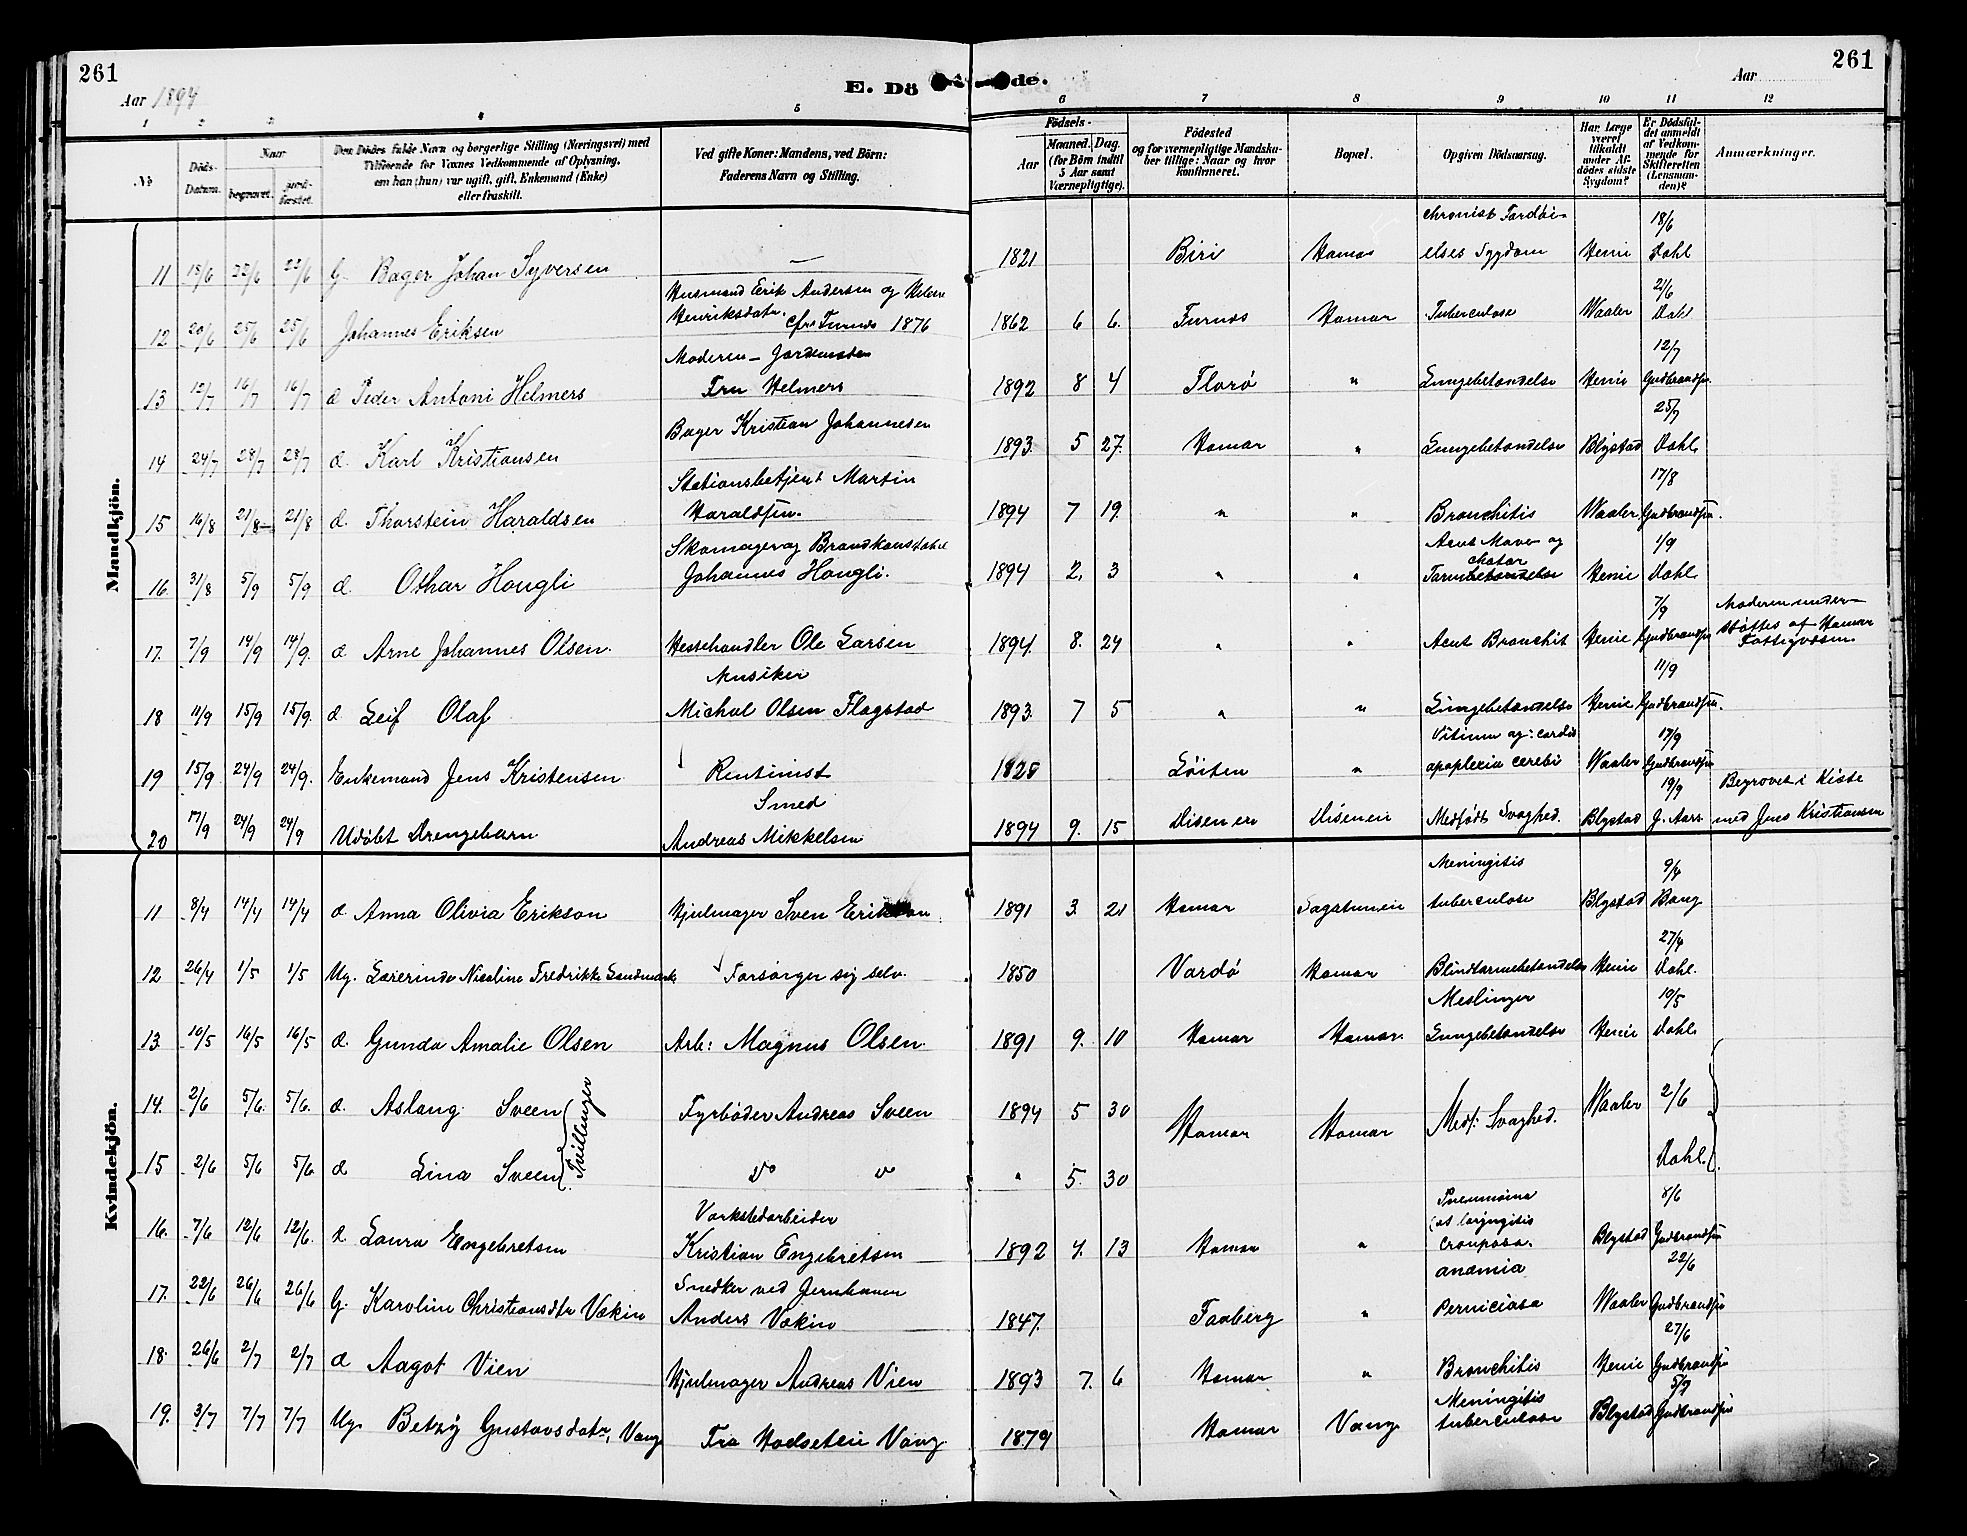 261
Aar 1894
E. Dö
de.
Aar
261
1 2 3 4 5 6 7 8 9 10 11 12
No
Döds-Datum.
Naar
begravet.
jord-fæstet.
Den Dødes fulde Navn og borgerlige Stilling (Næringsvei) med
Tilföiende for Voxnes Vedkommende af Oplysning,
om han (hun) var ugift, gift, Enkemand (Enke)
eller fraskilt.
Ved gifte Koner: Mandens, ved Börn:
Faderens Navn og Stilling.
Födsels-
Aar
Maaned. Dag.
(for Börn indtil
5 Aar samt
Værnepligtige).
Födested
og for værnepligtige Mandska-
ber tillige: Naar og hvor
konfirmeret.
Bopæl.
Opgiven Dödsaarsag.
Har Læge
været
tilkaldt
under Af-
dödes sidste
Sygdom?
Er Dödsfal-
det anmeldt
af Vedkom-
mende for
Skifteretten
(Lensman-
den)?
Anmærkninger.
Mandkjön.
11 18/6 22/6 22/6 G. Bager Johan Syversen — 1821 Biri Hamar chronisk Fordöi-
elses Sygdom Henie 18/6 Dahl
12 20/6 25/6 25/6 Johannes Eriksen Husmand Erik Andersen og Helene
Henriksdatr. cfr. Furnes 1876 1862 6 6. Furnæs Hamar Tuberculose Waaler 21/6 Dahl
13 12/7 16/7 16/7 d. Peder Antoni Helmers Moderen – Jordemoder
Fru Helmers 1892 8 4 Florø " Lungebetændelse Henie 12/7 Gudbrandsen
14 24/7 28/7 28/7 d. Karl Kristiansen Bager Kristian Johannesen 1893. 5 27. Hamar " Lungebetændelse Blystad 25/7 Dahl
15 16/8 21/8 21/8 d. Thorstein Haraldsen Stationsbetjent Martin
Haraldsen. 1894 7 19. " " Bronchitis Waaler 17/8 Gudbrandsen.
16. 31/8 5/9 5/9 d. Othar Hougli Skomager og Brandkonstabel
Johannes Hougli. 1894 2. 3 " " Acut Mave og
chatar
Tarmbetændelse Henie 1/9 Dahl
17. 7/9 14/9 14/9. d. Arne Johannes Olsen. Hestehandler Ole Larsen 1894. 8. 24 " " Acut Bronchit Henie 7/9 Gudbrandsen Moderen under-
støttes af Hamar
Fattigvæsen
18 11/9 15/9 15/9. d Leif Olaf Musiker
Michal Olsen Flagstad 1893. 7 5 " " Lungebetændelse Henie 11/9 Gudbrandsen.
19 15/9 24/9 24/9. Enkemand Jens Kristensen Rentinist 1825 Löiten " Vitium og: cordis
apoplexia cerebi Waaler 17/9 Gudbrandsen
20 17/9 24/9 24/9 Udöbt Drengebarn Smed
Andreas Mikkelsen 1894 9. 15 Disenen Disenen Medfödt Svaghed. Blystad 19/9 J. Aars Begravet i Kiste
med Jens Kristiansen
Kvindekjön.
11 8/4 14/4 14/4 d. Anna Olivia Erikson Hjulmager Sven Erikson 1891 3. 21 Hamar Sagatunen Meningitis
tuberculose Blystad 9/4 Bang
12 26/4 1/5 1/5 Ug. Lærerinde Nicoline Fredrikke Landmark Forsørger sig selv. 1850 Vardö Hamar Blindtarmbetændelse Henie 27/4 Dahl.
13 10/5 16/5 16/5 d. Gunda Amalie Olsen Arb: Magnus Olsen. 1891 9. 10 Hamar Hamar. Meslinger
Lungebetændelse Henie 10/5 Dahl
14. 2/6 5/6. 5/6. d. Aslaug Sveen Fyrbøder Andreas Sveen 1894 5 30 Hamar Hamar Medf: Svaghed. Waaler 2/6
Tvillinger
15 2/6 5/6 5/6 d Lina Sveen do do " 5. 30 Dahl.
16. 7/6 12/6 12/6. d. Laura Engebretsen Værkstedarbeider
Kristian Engebretsen 1892 4. 13 Hamar " Pneumonia
(et laryngitis
crouposa. Blystad 8/6 Gudbrandsen
17. 22/6 26/6 26/6 G. Karoline Christiansdtr Vækin Snedker ved Jernbanen
Anders Vækin 1847. Faaberg " anæmia
Perniciosa Waaler 22/6 Gudbrandsen
18. 26/6 2/7 2/7 d Aagot Vien Hjulmager Andreas Vien 1893 7. 6 Hamar " Bronchitis Henie 27/6 Gudbrandsen
19. 3/7 7/7 7/7 Ug. Betzy Gustavsdatr, Vang Fra Hodseteie Vang 1879 Hamar Vang Meningitis
tuberculose Blystad 5/7 Gudbrandsen